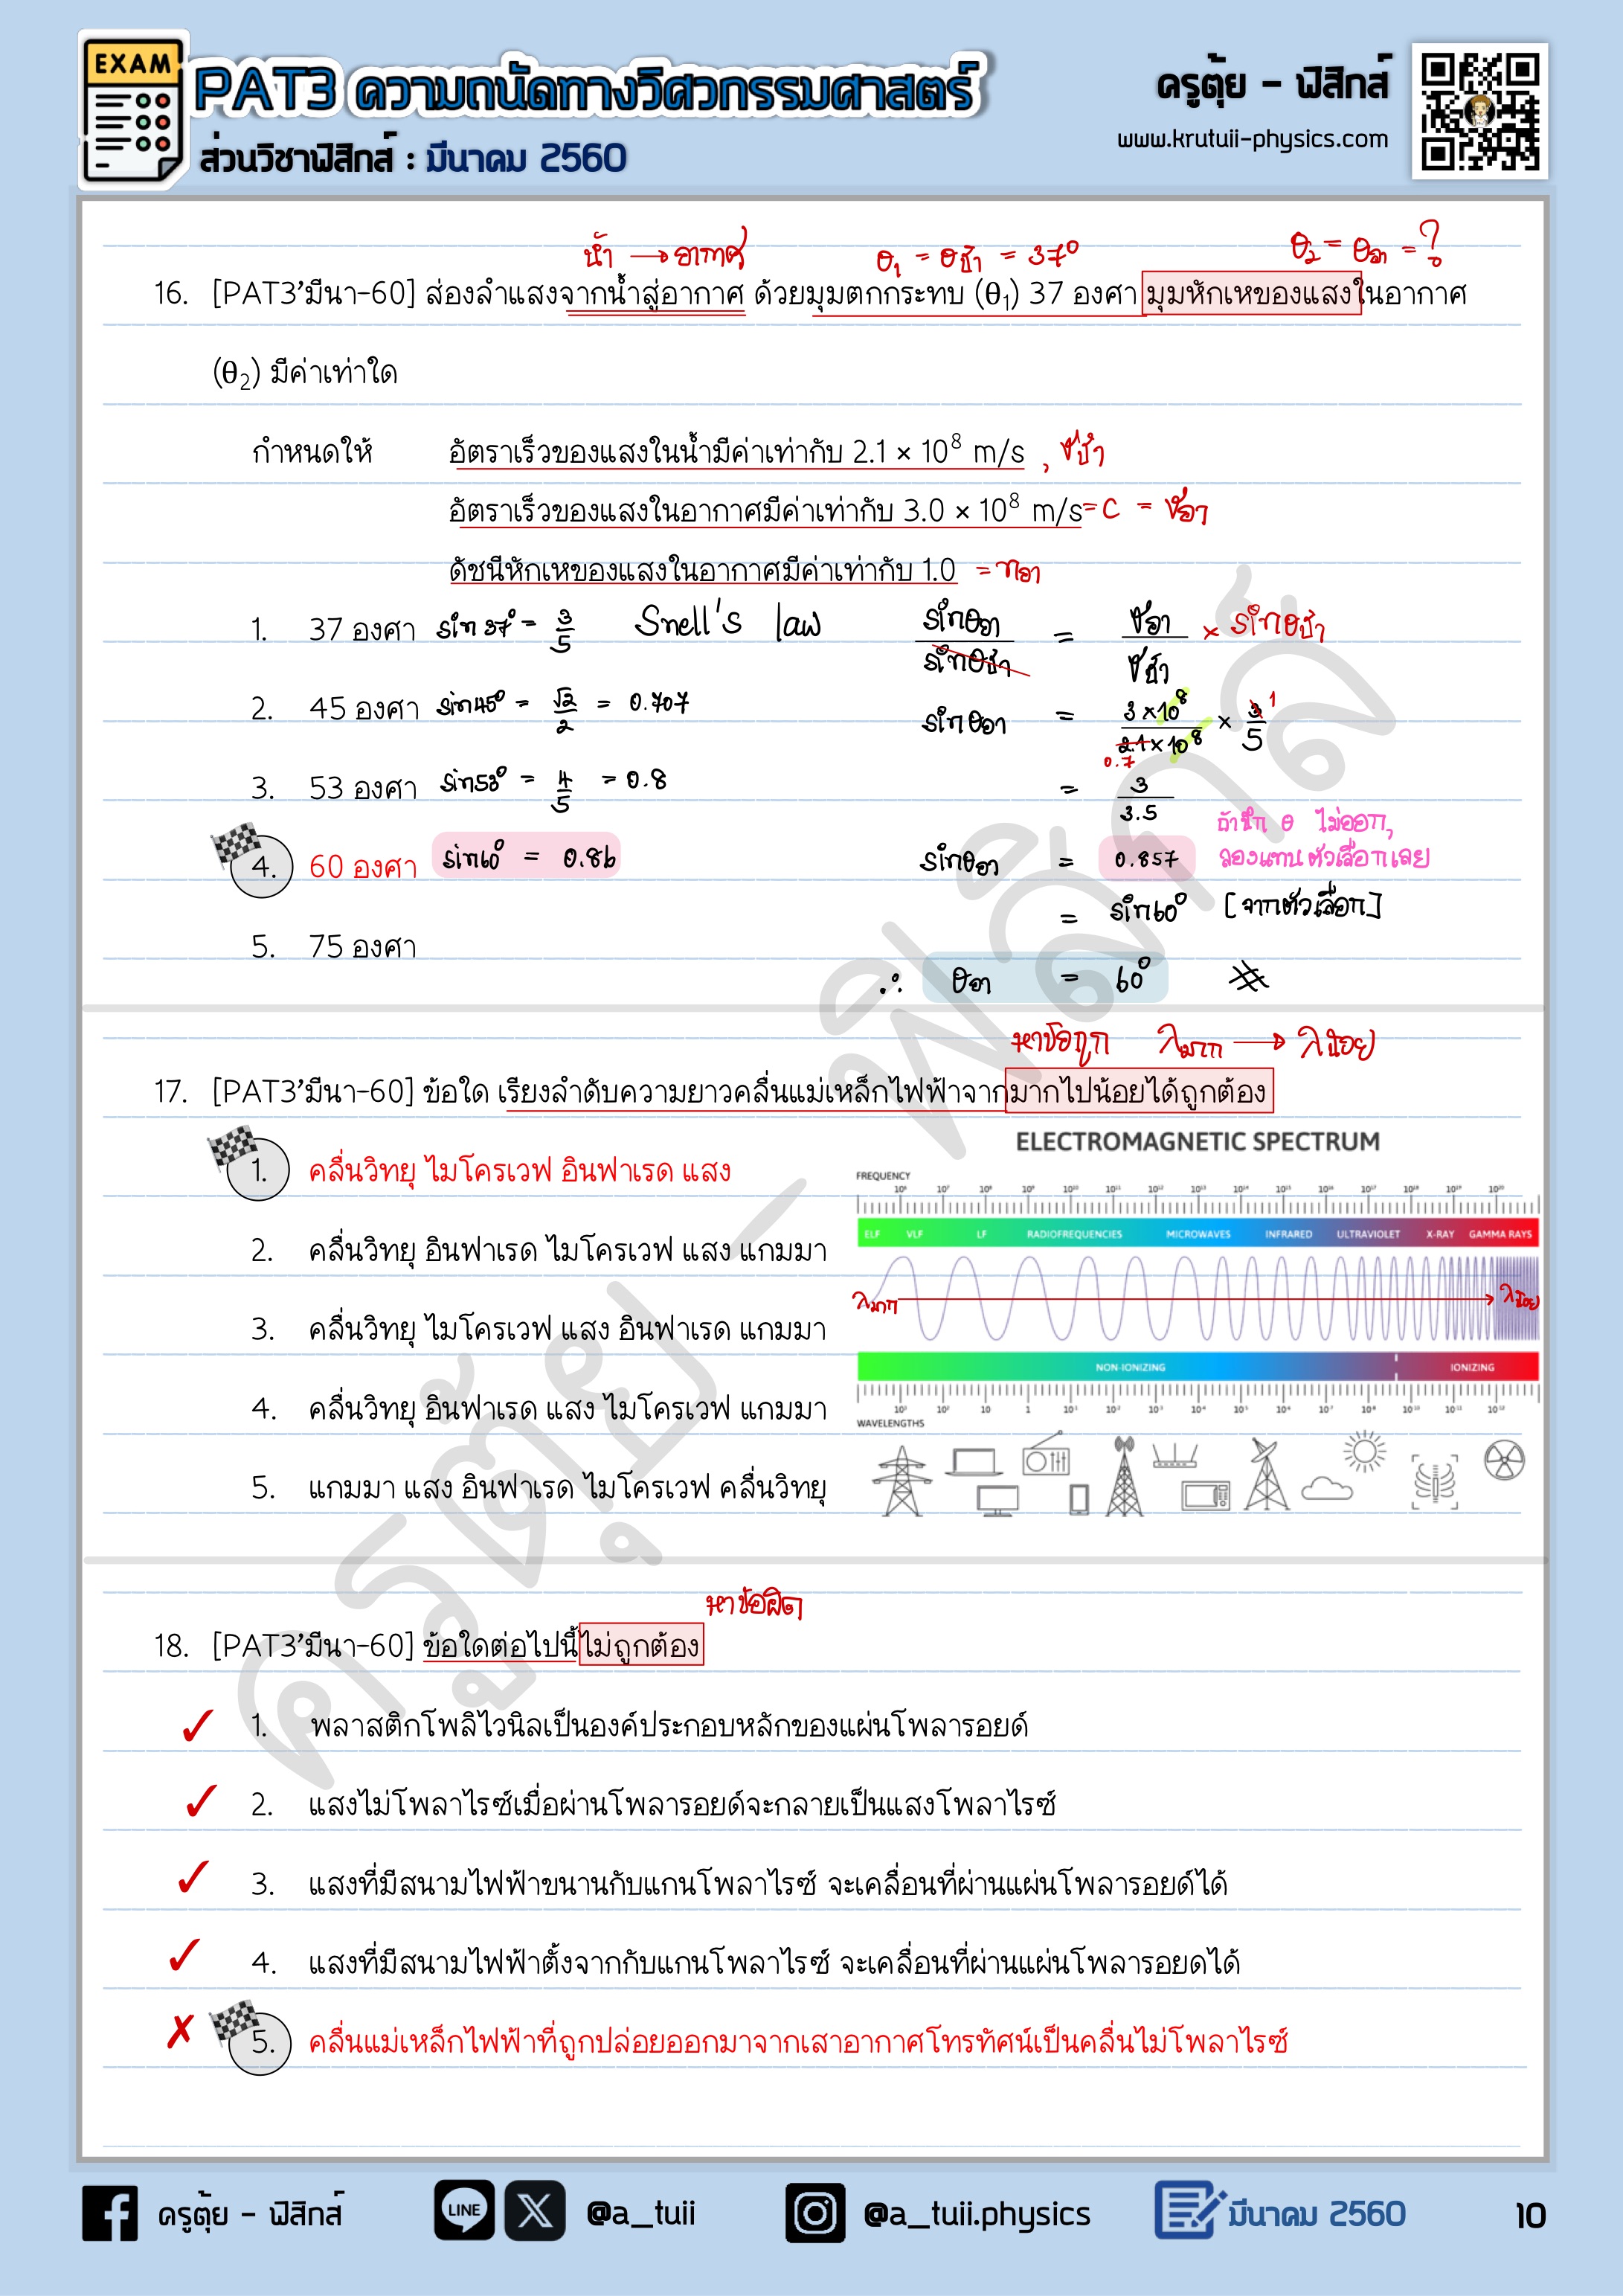 EXAM
PAT3 ความถนัดทางวิศวกรรมศาสตร์
ส่วนวิชาฟิสิกส์ : มีนาคม 2560
ครูตุ้ย - ฟิสิกส์
www.krutuii-physics.com
น้ำ → อากาศ θ₁ = θน้ำ = 37° θ₂ = θอา = ?
16. [PAT3'มีนา-60] ส่องลำแสงจากน้ำสู่อากาศ ด้วยมุมตกกระทบ (θ₁) 37 องศา มุมหักเหของแสงในอากาศ
(θ₂) มีค่าเท่าใด
กำหนดให้ อัตราเร็วของแสงในน้ำมีค่าเท่ากับ 2.1 × 10⁸ m/s , vน้ำ
อัตราเร็วของแสงในอากาศมีค่าเท่ากับ 3.0 × 10⁸ m/s = c = vอา
ดัชนีหักเหของแสงในอากาศมีค่าเท่ากับ 1.0 = nอา
1. 37 องศา sin 37° = 3/5 Snell's law sinθอา/sinθน้ำ = vอา/vน้ำ × sinθน้ำ
2. 45 องศา sin45° = √2/2 = 0.707 sinθอา = 3×10⁸/2.1×10⁸ × 3/5 1
0.7
3. 53 องศา sin53° = 4/5 = 0.8 = 3/3.5
ถ้านึก θ ไม่ออก,
4. 60 องศา sin60° = 0.86 sinθอา = 0.857 ลองแทนตัวเลือกเลย
= sin60° [จากตัวเลือก]
5. 75 องศา
∴ θอา = 60° #
หาข้อถูก λมาก → λน้อย
17. [PAT3'มีนา-60] ข้อใด เรียงลำดับความยาวคลื่นแม่เหล็กไฟฟ้าจากมากไปน้อยได้ถูกต้อง
1. คลื่นวิทยุ ไมโครเวฟ อินฟาเรด แสง
2. คลื่นวิทยุ อินฟาเรด ไมโครเวฟ แสง แกมมา
3. คลื่นวิทยุ ไมโครเวฟ แสง อินฟาเรด แกมมา
4. คลื่นวิทยุ อินฟาเรด แสง ไมโครเวฟ แกมมา
5. แกมมา แสง อินฟาเรด ไมโครเวฟ คลื่นวิทยุ
ELECTROMAGNETIC SPECTRUM
FREQUENCY
10⁶ 10⁷ 10⁸ 10⁹ 10¹⁰ 10¹¹ 10¹² 10¹³ 10¹⁴ 10¹⁵ 10¹⁶ 10¹⁷ 10¹⁸ 10¹⁹ 10²⁰
ELF VLF LF RADIOFREQUENCIES MICROWAVES INFRARED ULTRAVIOLET X-RAY GAMMA RAYS
λมาก λน้อย
NON-IONIZING IONIZING
10³ 10² 10 1 10⁻¹ 10⁻² 10⁻³ 10⁻⁴ 10⁻⁵ 10⁻⁶ 10⁻⁷ 10⁻⁸ 10⁻¹⁰ 10⁻¹¹ 10⁻¹²
WAVELENGTHS
หาข้อผิด
18. [PAT3'มีนา-60] ข้อใดต่อไปนี้ไม่ถูกต้อง
✓ 1. พลาสติกโพลิไวนิลเป็นองค์ประกอบหลักของแผ่นโพลารอยด์
✓ 2. แสงไม่โพลาไรซ์เมื่อผ่านโพลารอยด์จะกลายเป็นแสงโพลาไรซ์
✓ 3. แสงที่มีสนามไฟฟ้าขนานกับแกนโพลาไรซ์ จะเคลื่อนที่ผ่านแผ่นโพลารอยด์ได้
✓ 4. แสงที่มีสนามไฟฟ้าตั้งจากกับแกนโพลาไรซ์ จะเคลื่อนที่ผ่านแผ่นโพลารอยดได้
✗ 5. คลื่นแม่เหล็กไฟฟ้าที่ถูกปล่อยออกมาจากเสาอากาศโทรทัศน์เป็นคลื่นไม่โพลาไรซ์
ครูตุ้ย - ฟิสิกส์
ครูตุ้ย - ฟิสิกส์ LINE @a_tuii @a_tuii.physics มีนาคม 2560 10